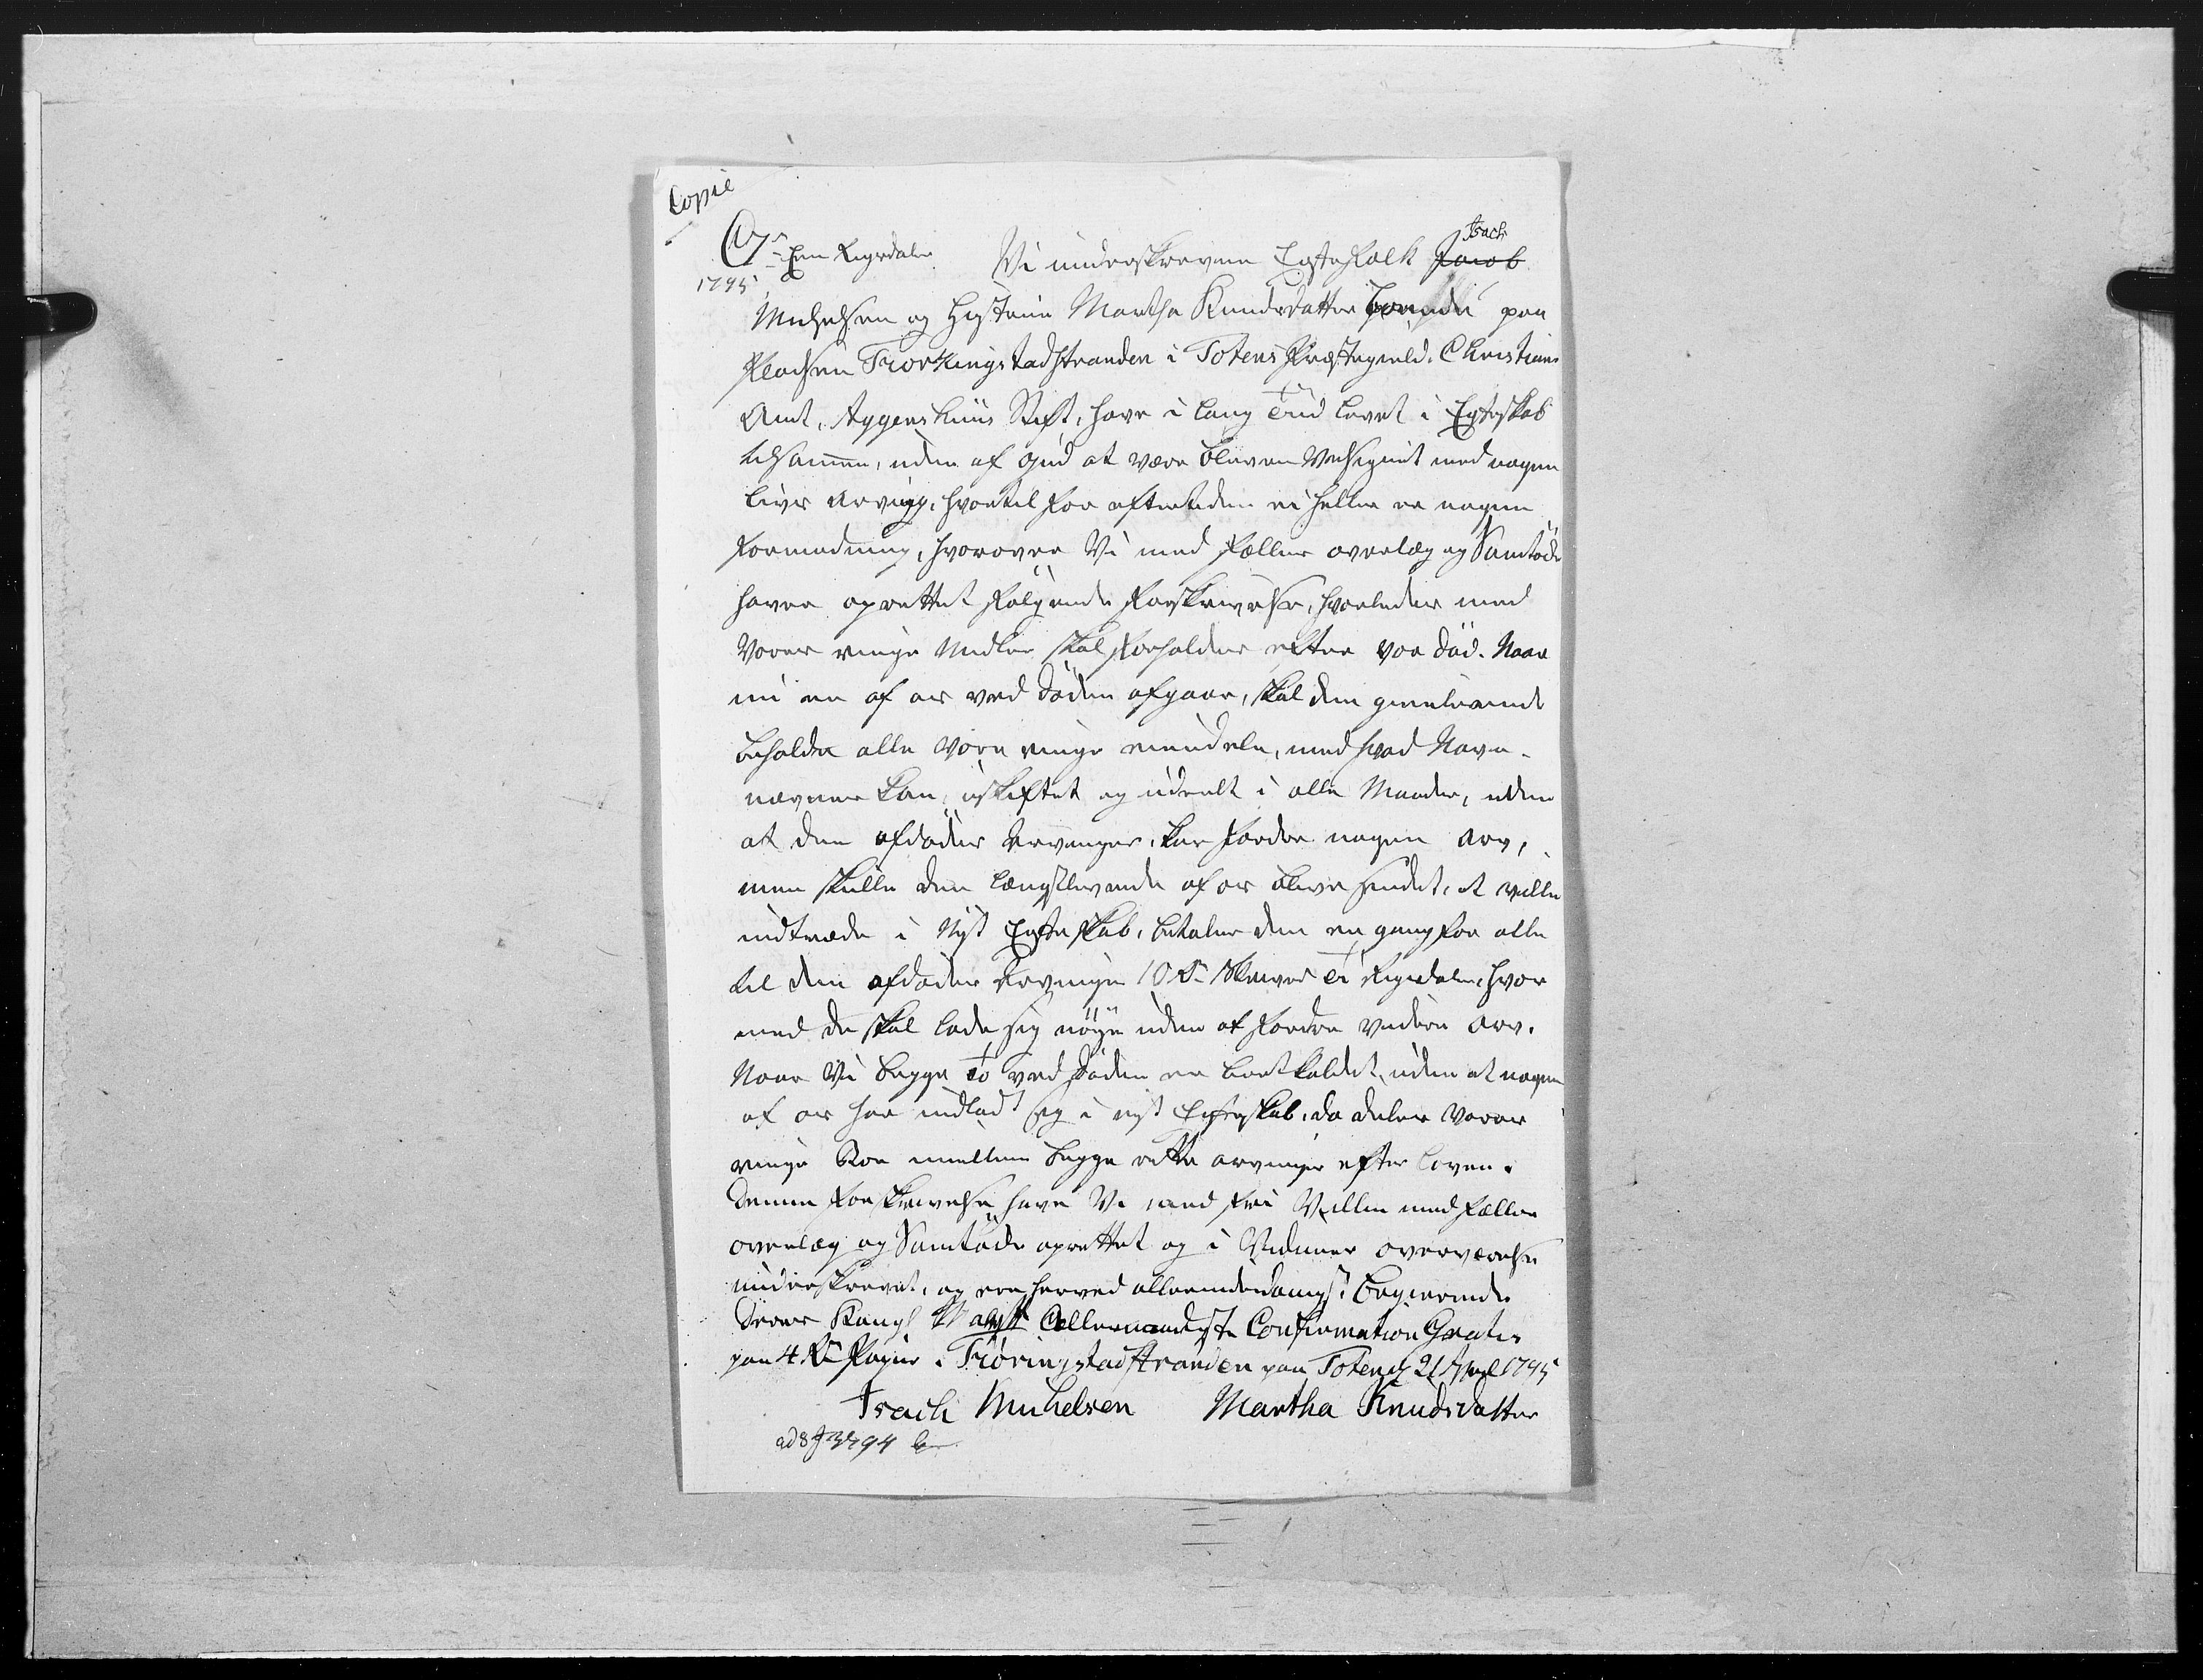 Copie
C7. Een Rigsdaler
1795
Isach
Vi underskrevne Egtefolk Jacob
Michelsen og Hustrue Martha Knudsdatter boende paa
Pladsen Trorkingstadstranden i Totens Præstegield, Christians
Amt, Aggershuus Stift, have i lang Tiid levet i Egteskab
tilsammen, uden af Gud at være bleven Velsignet med nogen
Livs Arving, hvortil for eftertiden ei heller er nogen
Formodning, hvorover Vi med fælles overlæg og Samtøcke
haver oprettet følgende Forskrivelse, hvorledes med
Vores ringe Midler skal forholdes efter vor Død. Naar
nu en af os ved Døden afgaar, skal den gienlevende
beholde alle Vore ringe eiendele, med hvad Navn
nævnes kan, uskiftet og udeelt i alle Maader, uden
at den afdødes Arvinger kan fordre nogen Arv,
men skulle den længstlevende af os blive sindet, at ville
indtræde i Nyt Egteskab, betaler den en gang for alle
til den afdødes Arvinger 10 Rd. skriver Ti Rigsdaler, hvor
med de skal lade sig nøye uden at fordre videre Arv.
Naar Vi begge To ved Døden er bortkaldet, uden at nogen
af os har indladt sig i nyt Egteskab, da deles Vores
ringe Boe imellem begges rette arvinger efter Loven.
Denne Forskrivelse have Vi med frie Villie med fælles
overlæg og Samtøcke oprettet og i Vidners overværelse
underskrevet, og ere herved allerunderdanigst begierende
Deres Kongl Mayst Allernaadigste Confirmation Gratis
paa 4 Rd. Papir. Trøringstadstranden paa Toten d 21 April 1795
Isach Michelsen Martha Knudsdatter